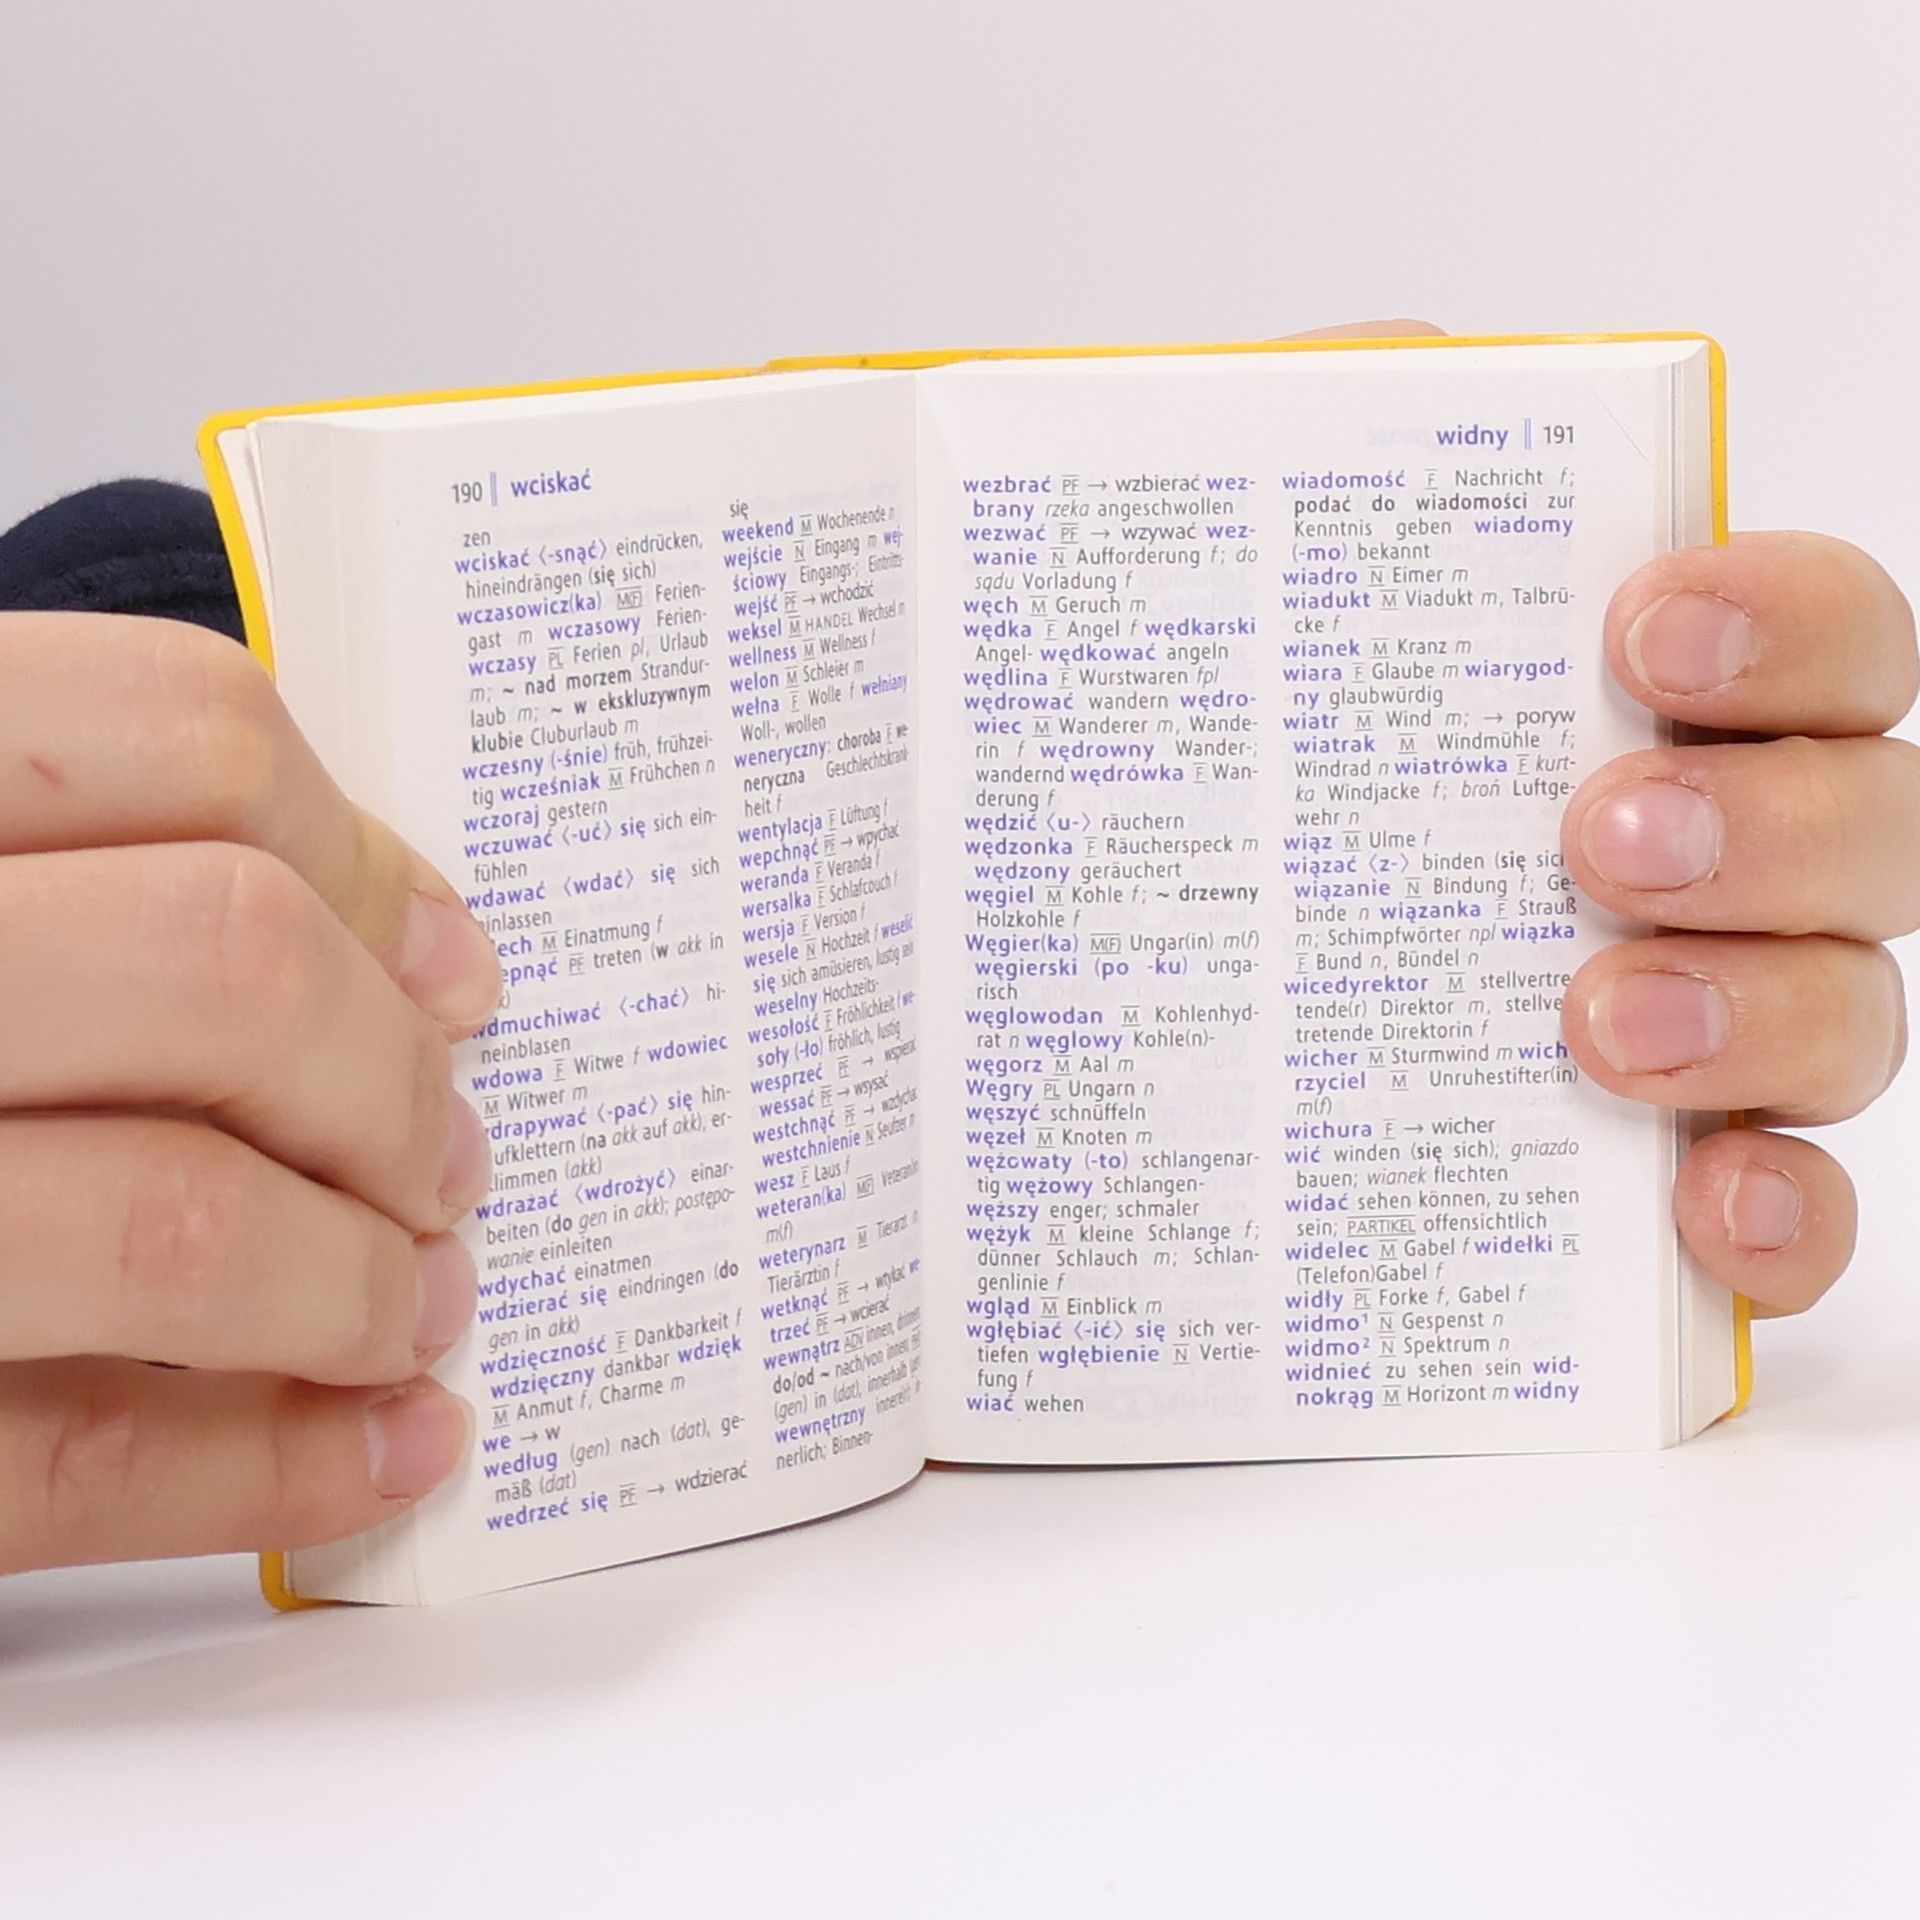 190 || wciskać
zen
wciskać ⟨-snąć⟩ eindrücken,
hineindrängen (się sich)
wczasowicz(ka) M(F) Ferien-
gast m wczasowy Ferien-
wczasy PL Ferien pl, Urlaub
m; ~ nad morzem Strandur-
laub m; ~ w ekskluzywnym
klubie Cluburlaub m
wczesny (-śnie) früh, frühzei-
tig wcześniak M Frühchen n
wczoraj gestern
wczuwać ⟨-uć⟩ się sich ein-
fühlen
wdawać ⟨wdać⟩ się sich
einlassen
M Einatmung f
PF treten (w akk in
wdmuchiwać ⟨-chać⟩ hi-
neinblasen
wdowa F Witwe f wdowiec
M Witwer m
wdrapywać ⟨-pać⟩ się hin-
aufklettern (na akk auf akk), er-
klimmen (akk)
wdrażać ⟨wdrożyć⟩ einar-
beiten (do gen in akk); postępo-
wanie einleiten
wdychać einatmen
wdzierać się eindringen (do
gen in akk)
wdzięczność F Dankbarkeit f
wdzięczny dankbar wdzięk
M Anmut f, Charme m
we → w
według (gen) nach (dat), ge-
mäß (dat)
wedrzeć się PF → wdzierać
się
weekend M Wochenende n
wejście N Eingang m wej-
ściowy Eingangs-; Eintritts-
wejść PF → wchodzić
weksel M HANDEL Wechsel m
wellness M Wellness f
welon M Schleier m
wełna F Wolle f wełniany
Woll-, wollen
weneryczny: choroba F we-
neryczna Geschlechtskrank-
heit f
wentylacja F Lüftung f
wepchnąć PF → wpychać
weranda F Veranda f
wersalka F Schlafcouch f
wersja F Version f
wesele N Hochzeit f weselić
się sich amüsieren, lustig sein
weselny Hochzeits-
wesołość F Fröhlichkeit f we-
soły (-ło) fröhlich, lustig
wesprzeć PF → wspierać
wessać PF → wsysać
westchnąć PF → wzdychać
westchnienie N Seufzer m
wesz F Laus f
weteran(ka) M(F) Veteran(in)
m(f)
weterynarz M Tierarzt m,
Tierärztin f
wetknąć PF → wtykać we-
trzeć PF → wcierać
wewnątrz ADV innen, drinnen
do/od ~ nach/von innen
(gen) in (dat), innerhalb (gen)
wewnętrzny innere(r)
nerlich; Binnen-
widny || 191
wezbrać PF → wzbierać wez-
brany rzeka angeschwollen
wezwać PF → wzywać wez-
wanie N Aufforderung f; do
sądu Vorladung f
węch M Geruch m
wędka F Angel f wędkarski
Angel- wędkować angeln
wędlina F Wurstwaren fpl
wędrować wandern wędro-
wiec M Wanderer m, Wande-
rin f wędrowny Wander-;
wandernd wędrówka F Wan-
derung f
wędzić ⟨u-⟩ räuchern
wędzonka F Räucherspeck m
wędzony geräuchert
węgiel M Kohle f; ~ drzewny
Holzkohle f
Węgier(ka) M(F) Ungar(in) m(f)
węgierski (po -ku) unga-
risch
węglowodan M Kohlenhyd-
rat n węglowy Kohle(n)-
węgorz M Aal m
Węgry PL Ungarn n
węszyć schnüffeln
węzeł M Knoten m
wężowaty (-to) schlangenar-
tig wężowy Schlangen-
węższy enger; schmaler
wężyk M kleine Schlange f;
dünner Schlauch m; Schlan-
genlinie f
wgląd M Einblick m
wgłębiać ⟨-ić⟩ się sich ver-
tiefen wgłębienie N Vertie-
fung f
wiać wehen
wiadomość F Nachricht f;
podać do wiadomości zur
Kenntnis geben wiadomy
(-mo) bekannt
wiadro N Eimer m
wiadukt M Viadukt m, Talbrü-
cke f
wianek M Kranz m
wiara F Glaube m wiarygod-
ny glaubwürdig
wiatr M Wind m; → poryw
wiatrak M Windmühle f;
Windrad n wiatrówka F kurt-
ka Windjacke f; broń Luftge-
wehr n
wiąz M Ulme f
wiązać ⟨z-⟩ binden (się sich
wiązanie N Bindung f; Ge-
binde n wiązanka F Strauß
m; Schimpfwörter npl wiązka
F Bund n, Bündel n
wicedyrektor M stellvertre
tende(r) Direktor m, stellve
tretende Direktorin f
wicher M Sturmwind m wich
rzyciel M Unruhestifter(in)
m(f)
wichura F → wicher
wić winden (się sich); gniazdo
bauen; wianek flechten
widać sehen können, zu sehen
sein; PARTIKEL offensichtlich
widelec M Gabel f widełki PL
(Telefon)Gabel f
widły PL Forke f, Gabel f
widmo¹ N Gespenst n
widmo² N Spektrum n
widnieć zu sehen sein wid-
nokrąg M Horizont m widny